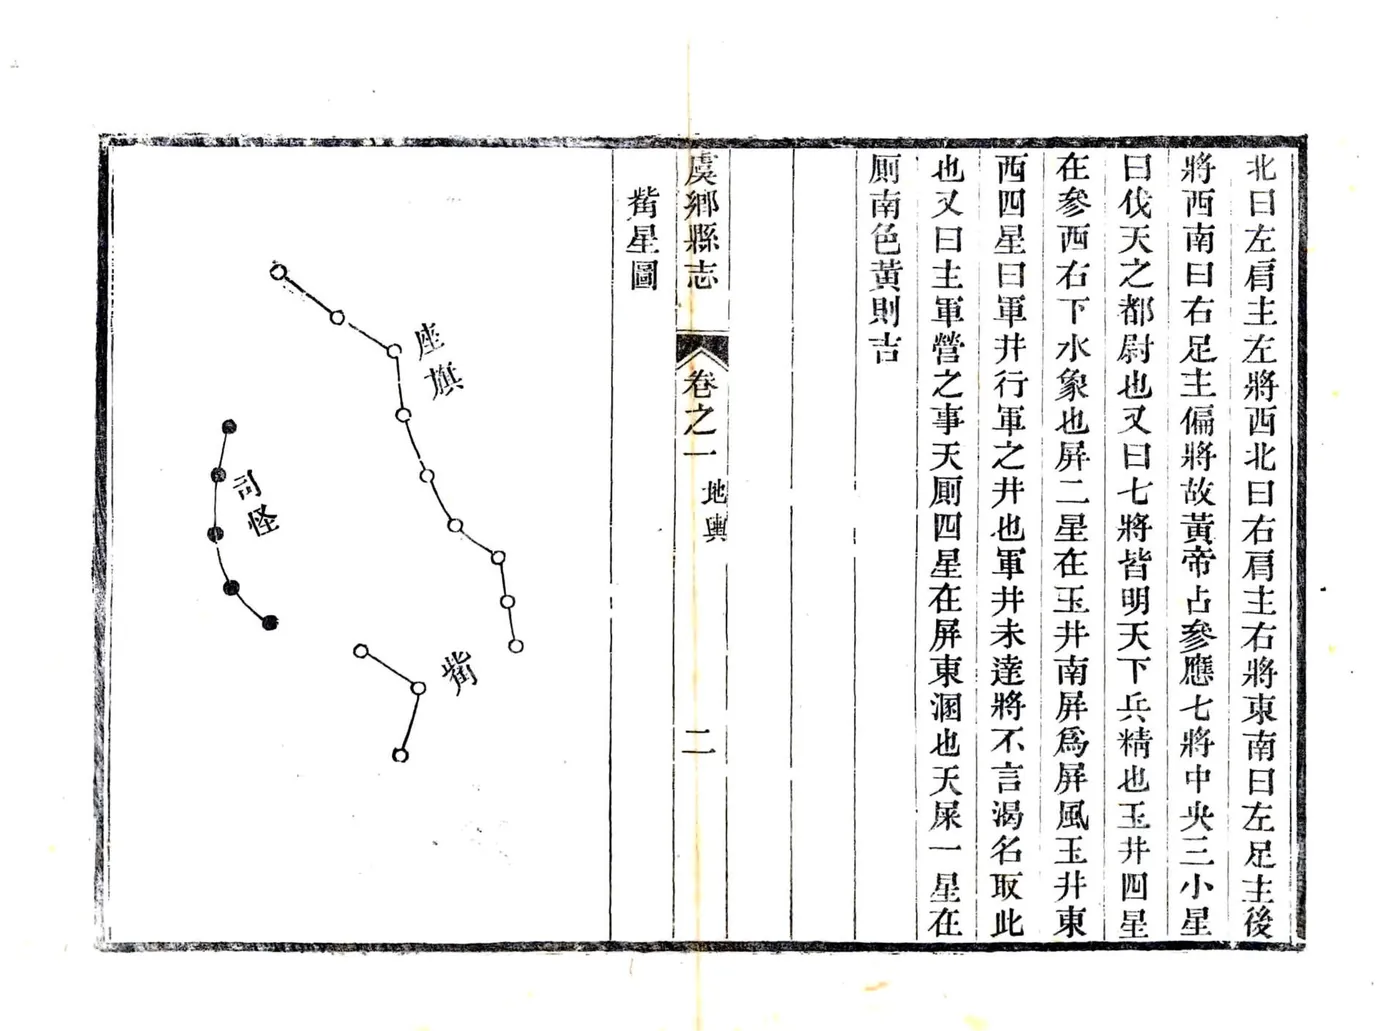 北曰左肩主左將西北曰右肩主右將東南曰左足主後
將西南曰右足主偏將故黃帝占參應七將中央三小星
曰伐天之都尉也又曰七將皆明天下兵精也玉井四星
在參西右下水象也屏二星在玉井南屏爲屏風玉井東
西四星曰軍井行軍之井也軍井未達將不言渴名取此
也又曰主軍營之事天厠四星在屏東溷也天屎一星在
厠南色黃則吉
虞鄉縣志
卷之一
地輿
二
觜星圖
座旗
司怪
觜